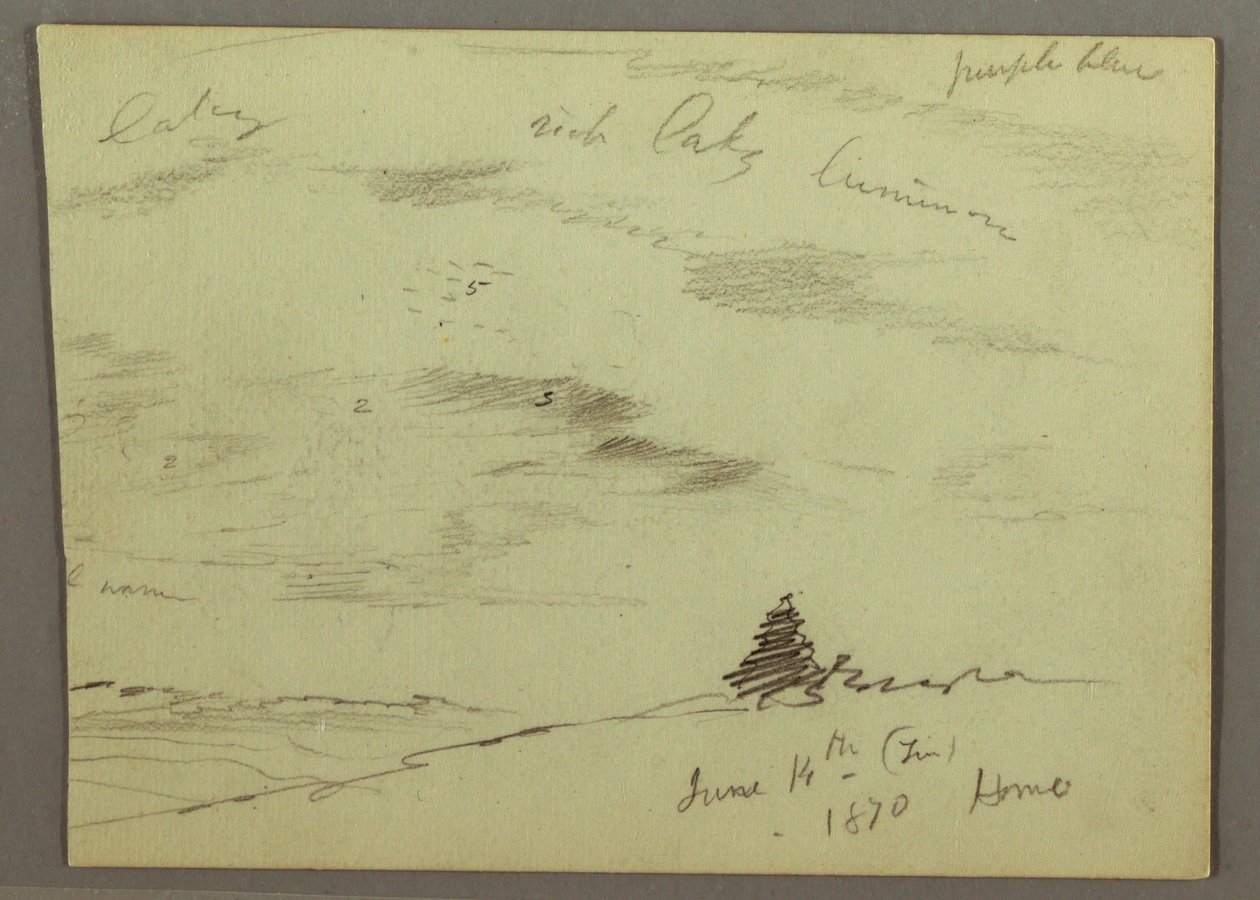 purple blue
laky
rich laky luminon
5
2
5
2
warm
June 14th
1870 Home